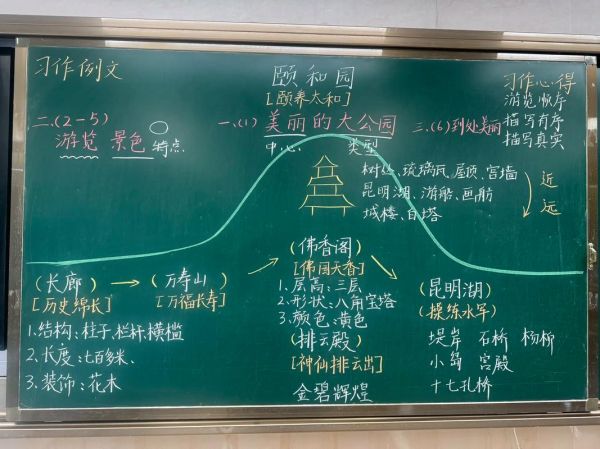 习作例文
颐和园
[颐养太和]
习作心得
游览顺序
描写有序
描写真实
二、(2-5)
游览 景色 特点
一、(1) 美丽的大公园
中心 类型
三、(6) 到处美丽
树丛、琉璃瓦、屋顶、宫墙
昆明湖、游船、画舫
城楼、白塔
近
远
(长廊) → (万寿山)
[历史绵长] [万福长寿]
1.结构:柱子、栏杆、横槛
2.长度:七百多米、
3.装饰:花木
(佛香阁)
[佛国天香]
1.层高:三层
2.形状:八角宝塔
3.颜色:黄色
(排云殿)
[神仙排云出]
金碧辉煌
(昆明湖)
(操练水军)
堤岸 石桥 杨柳
小岛 宫殿
十七孔桥